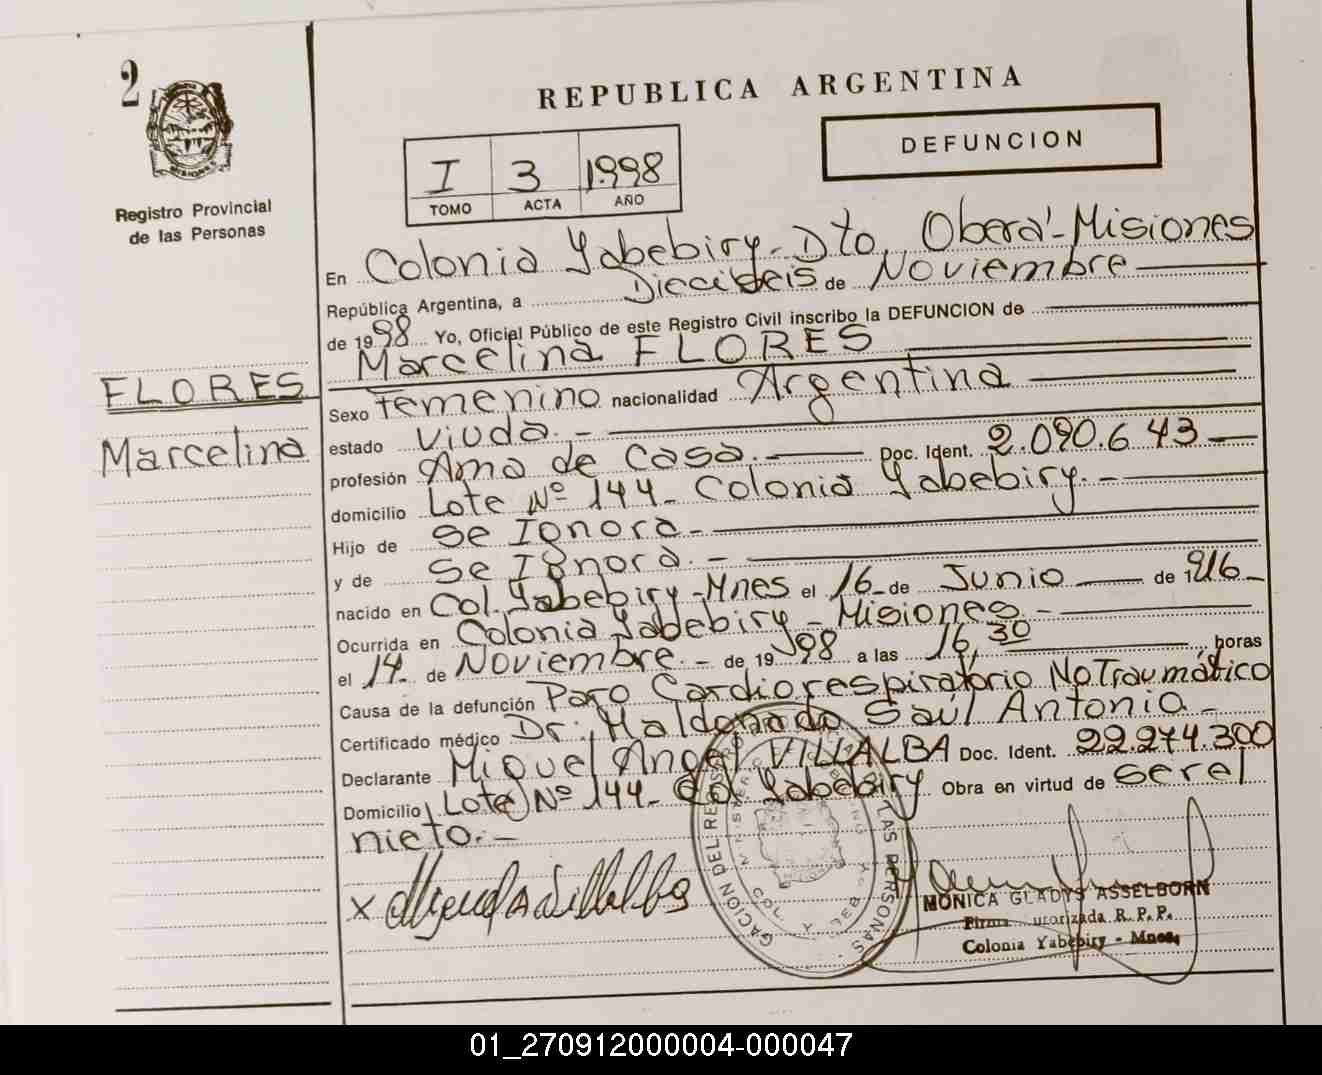 2
REPUBLICA ARGENTINA
DEFUNCION
I 3 1998
TOMO ACTA AÑO
Registro Provincial
de las Personas
En Colonia Yabebiry - Dto. Oberá - Misiones
República Argentina, a Dieciseis de Noviembre
de 1998 Yo, Oficial Público de este Registro Civil inscribo la DEFUNCION de
Marcelina FLORES
FLORES
Marcelina
Sexo Femenino nacionalidad Argentina
estado Viuda.-
profesión Ama de Casa. Doc. Ident. 2.090.643
domicilio Lote Nº 144 - Colonia Yabebiry.-
Hijo de Se Ignora -
y de Se Ignora. -
nacido en Col. Yabebiry - Mnes el 16 de Junio de 1916
Ocurrida en Colonia Yabebiry - Misiones. -
el 14 de Noviembre. - de 1998 a las 16,30 horas
Causa de la defunción Paro Cardiorespiratorio No Traumático
Certificado médico Dr: Maldonado Saúl Antonio -
Declarante Miguel Angel VILLALBA Doc. Ident. 22.274.300
Domicilio Lote Nº 144 - Col Yabebiry Obra en virtud de ser el
nieto. -
x Miguel A Villalba
MONICA GLADYS ASSELBORN
Firma utorizada R.P.P.
Colonia Yabebiry - Mnes.
GACION DEL RE LAS PERSONAS
01_270912000004-000047